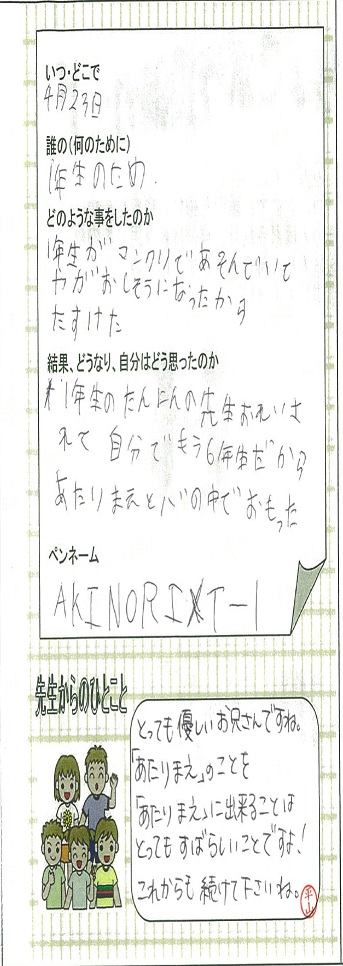 いつ・どこで
4月23日
誰の(何のために)
1年生のため.
どのような事をしたのか
1年生がマンクリであそんでいて
やがおしそうになったから
たすけた
結果、どうなり、自分はどう思ったのか
1年生のたんにんの先生おれいさ
れて自分でもう6年生だから
あたりまえと心の中でおもった
ペンネーム
AKINORI T-1
先生からのひとこと
とっても優しいお兄さんですね。
「あたりまえ」のことを
「あたりまえ」に出来ることは
とってもすばらしいことですよ!
これからも続けて下さいね。
平山